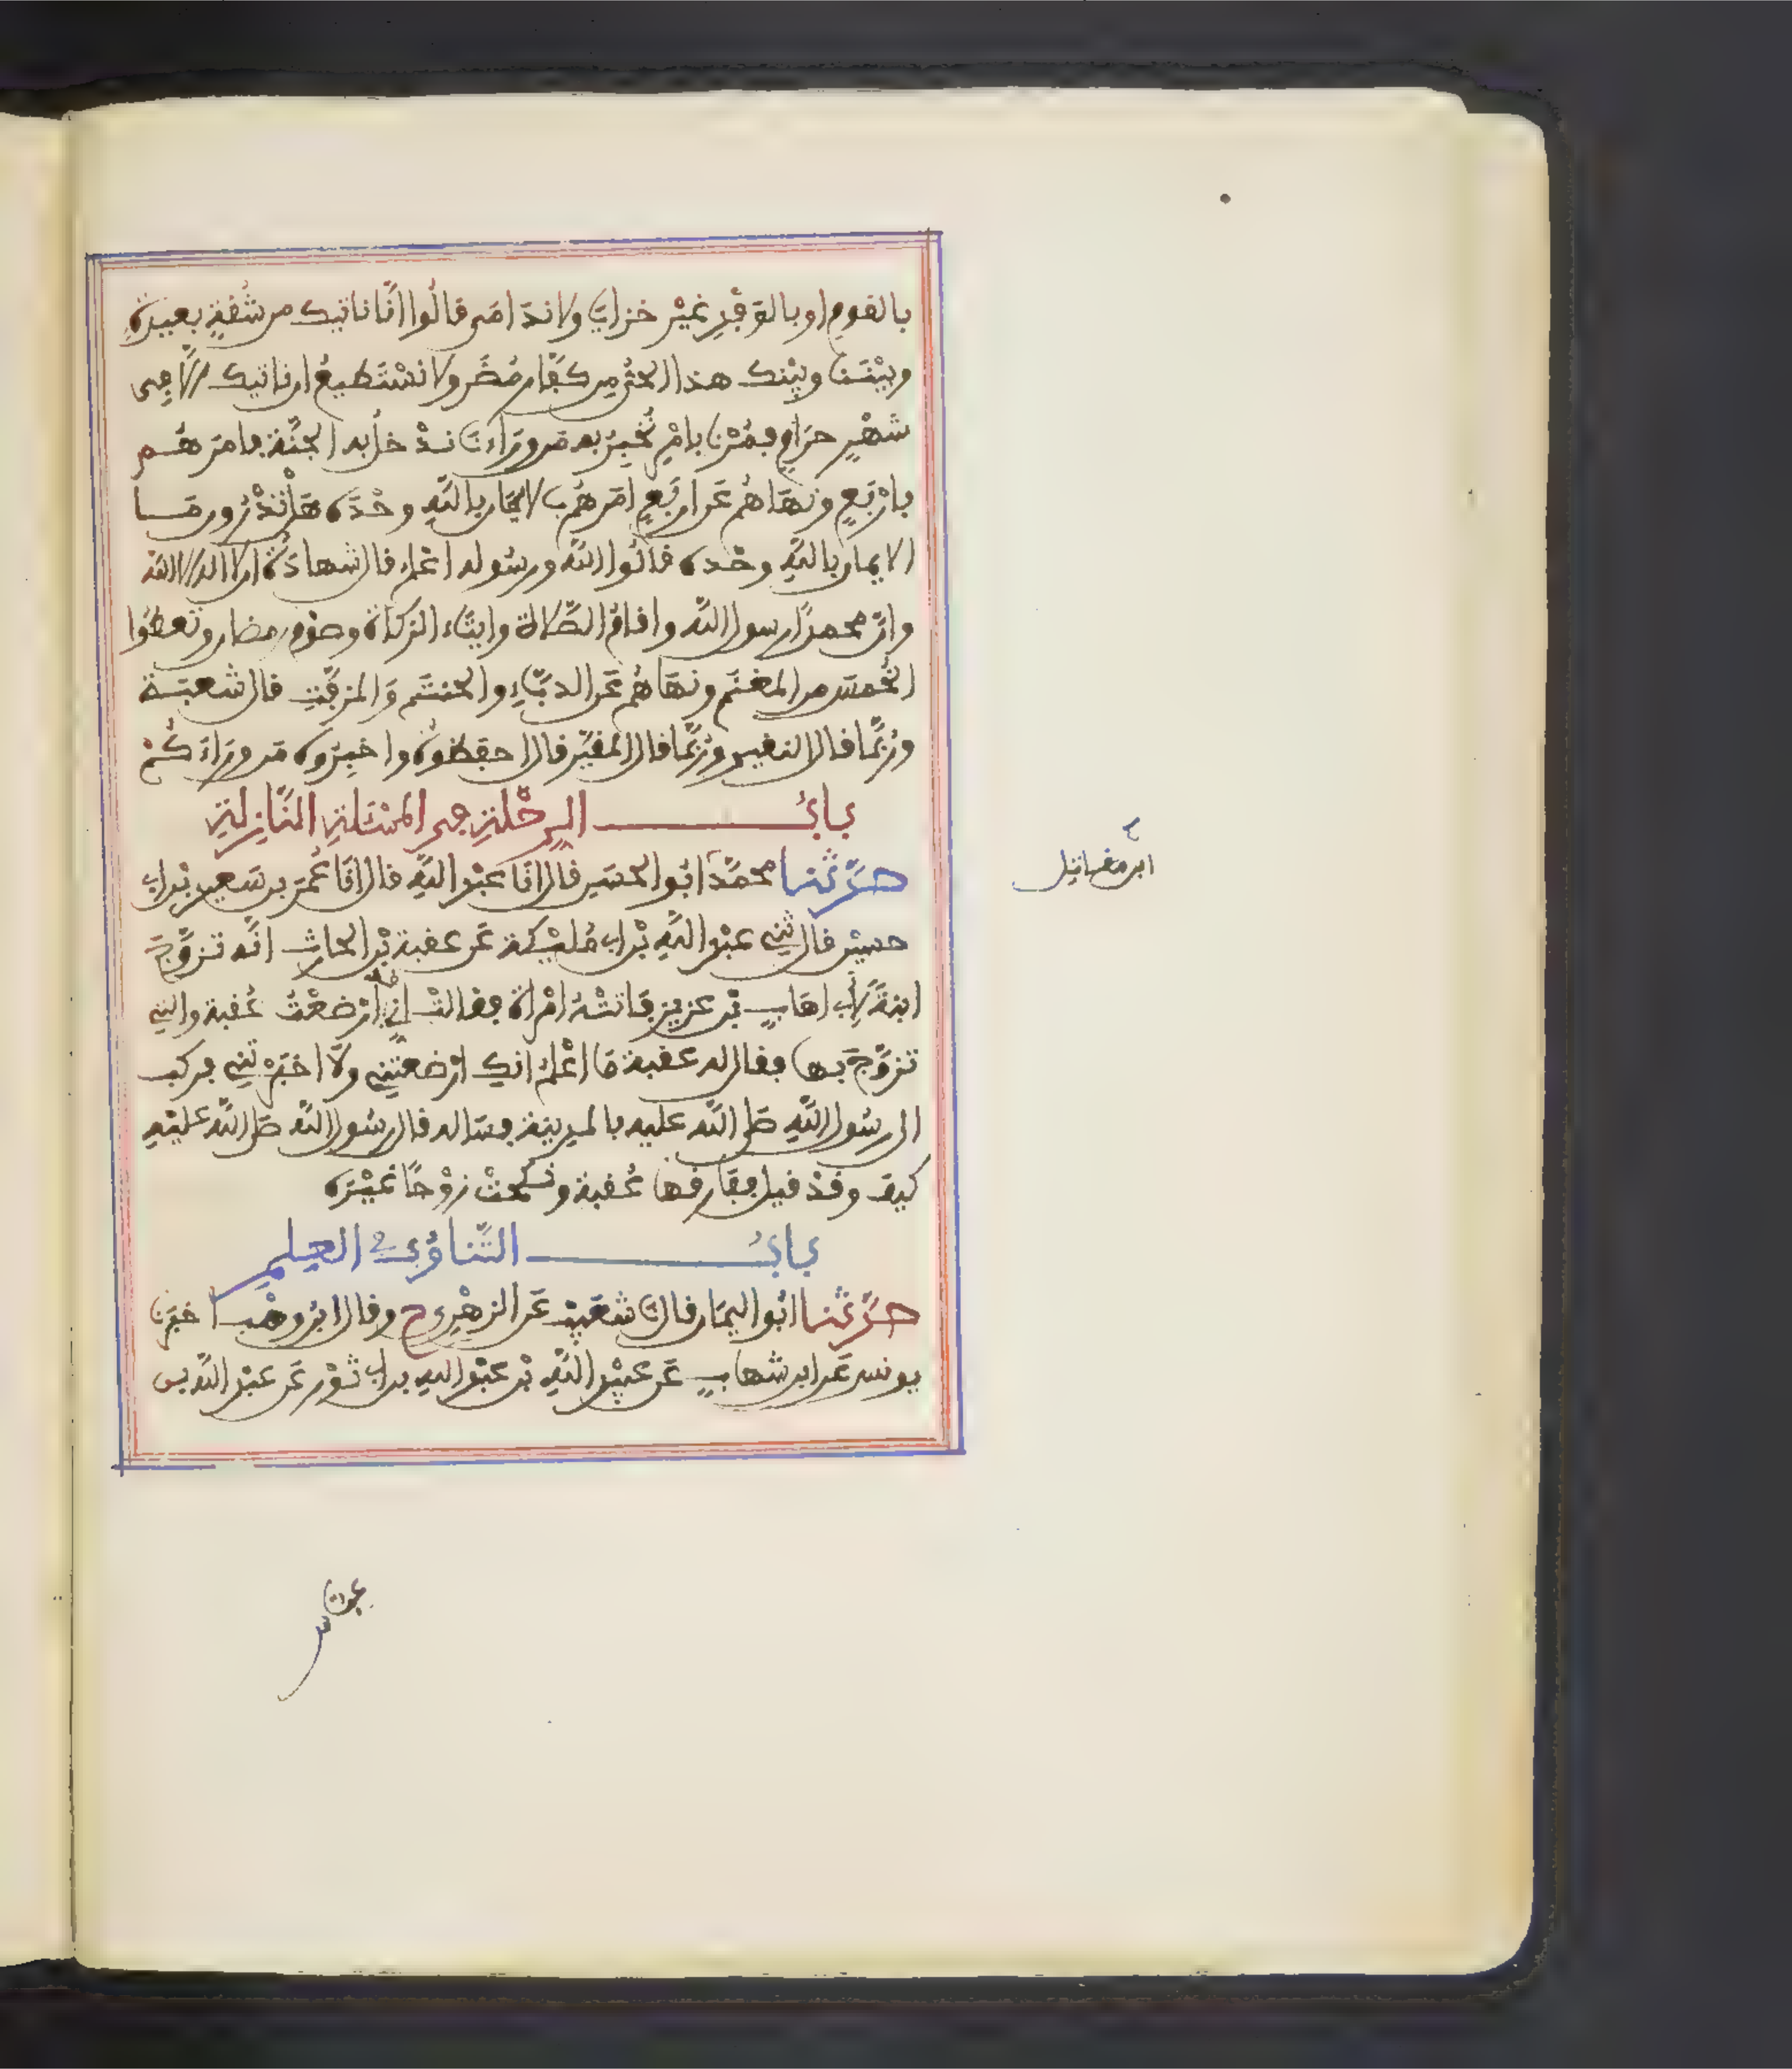 بالقومِ او بالوَفْدِ غيْر خزايَا ولا ندَامَى قالُوا انَّا ناتيك من شُقةٍ بعيدةٍ
وبيْنَنا وبيْنك هذا الحيُّ مِن كفّار مُضَر ولا نسْتَطيعُ ان ناتيك الَّا في
شهْرٍ حرَامٍ فمُرْنا بامْرٍ نُخْبِرُ به مَن ورَاءنَا ندْخلُ به الجنَّة فامرَهُم
بارْبَعٍ ونهَاهُم عَن ارْبَعٍ امرَهُم بالايمَان بالله وحْدَه هَلْ تَدْرُون مَا
الايمان بالله وحْده قالُوا الله ورسُوله اعْلم قال شهادَةُ ان لا اله الا الله
وانّ محمدًا رسول الله واقامُ الصَّلاة وايتَاء الزكاة وصوْم رمضان وتعطُوا
الخُمسَ من المغنَم ونهَاهُم عَن الدبَّاءِ والحنتَم وَالمزفَّتِ قال شعبَة
ورُبَّما قال النقير ورُبَّما قال المقيَّر قال احفظُوهُ واخبِرُوه مَن ورَاءَكُمْ
بابُ الرحْلةِ في المسْئَلةِ النَّازِلةِ
حدَّثنا محمَّد ابُو الحسَن قال انَا عبْد الله قال انَا عُمَر بن سَعيد بْن ابي
حسيْن قال ثني عبْد الله بْن ابي مُليْكة عَن عقبة بْن الحارث انَّه تزوَّجَ
ابنةً لابي اهَابِ بْن عزيز فَاتتْهُ امْراة فقالتْ اني قد ارْضعْتُ عُقبة والتي
تزوَّجَ بها فقال له عقبة مَا اعْلمُ انكِ ارْضعتِني ولا اخبَرْتِني فركب
الى رسُول الله صلى الله عليه بالمدينة فسَاله قال رسُول الله صلى الله عليْهِ
كيف وقدْ قيل ففَارقها عُقبة ونكَحتْ زوْجًا غيْرَه
بابُ التَّناوُب في العِلم
حدَّثنا ابُو اليمَان قال انَا شعَيْب عَن الزهْرِي ح وقال ابْن وهْب اخبَرنَا
يونس عَن ابن شهاب عَن عبيْد الله بْن عبْد الله بن ابي ثوْر عَن عبْد الله بن
ابن مقاتل